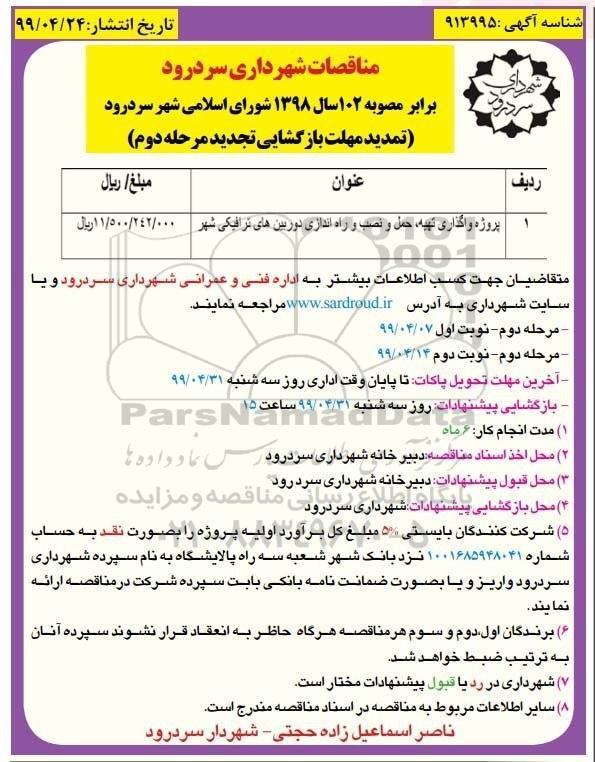 شناسه آگهی :۹۱۳۹۹۵
تاریخ انتشار:۹۹/۰۴/۲۴
شهرداری سردرود
مناقصات شهرداری سردرود
برابر مصوبه ۱۰۲سال ۱۳۹۸ شورای اسلامی شهر سردرود
(تمدید مهلت بازگشایی تجدید مرحله دوم)
ردیف عنوان مبلغ/ ریال
۱ پروژه واگذاری تهیه، حمل و نصب و راه اندازی دوربین های ترافیکی شهر ۱۱/۵۰۰/۲۴۲/۰۰۰ریال
متقاضیان جهت کسب اطلاعات بیشتر به اداره فنی و عمرانی شهرداری سردرود و یا
سایت شهرداری به آدرس www.sardroud.ir مراجعه نمایند.
– مرحله دوم- نوبت اول ۹۹/۰۴/۰۷
– مرحله دوم- نوبت دوم ۹۹/۰۴/۱۴
– آخرین مهلت تحویل پاکات: تا پایان وقت اداری روز سه شنبه ۹۹/۰۴/۳۱
– بازگشایی پیشنهادات: روز سه شنبه ۹۹/۰۴/۳۱ ساعت ۱۵
۱) مدت انجام کار: ۶ ماه
۲) محل اخذ اسناد مناقصه:دبیر خانه شهرداری سردرود
۳) محل قبول پیشنهادات: دبیرخانه شهرداری سرد رود
۴) محل بازگشایی پیشنهادات:شهرداری سردرود
۵) شرکت کنندگان بایستی ۵% مبلغ کل برآورد اولیه پروژه را بصورت نقد به حساب
شماره ۱۰۰۱۶۸۵۹۴۸۰۴۱ نزد بانک شهر شعبه سه راه پالایشگاه به نام سپرده شهرداری
سردرود واریز و یا بصورت ضمانت نامه بانکی بابت سپرده شرکت درمناقصه ارائه
نمایند.
۶) برندگان اول،دوم و سوم هرمناقصه هرگاه حاظر به انعقاد قرار نشوند سپرده آنان
به ترتیب ضبط خواهد شد.
۷) شهرداری در رد یا قبول پیشنهادات مختار است.
۸) سایر اطلاعات مربوط به مناقصه در اسناد مناقصه مندرج است.
ناصر اسماعیل زاده حجتی- شهردار سردرود
ParsNamadData
پایگاه اطلاع رسانی مناقصه ومزایده